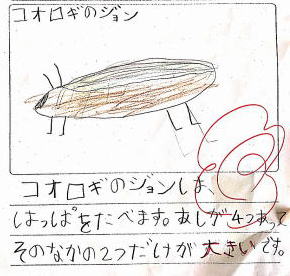 コオロギのジョン
コオロギのジョンは、
はっぱをたべます。あしが4つあって
そのなかの2つだけが大きいです。